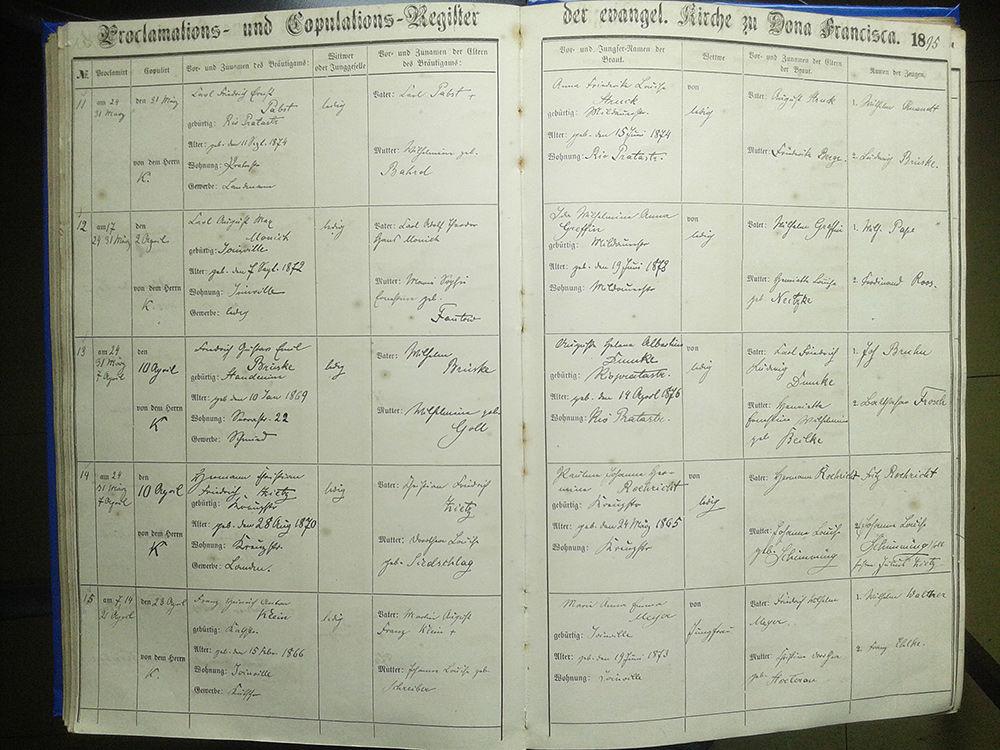 Proclamations- und Copulations-Register der evangel. Kirche zu Dona Francisca. 1895
№ Proclamirt Copulirt Vor- und Zunamen des Bräutigams: Wittwer oder Junggeselle Vor- und Zunamen der Eltern des Bräutigams: Vor- und Jungfer-Namen der Braut. Wettwe Vor- und Zunamen der Eltern der Braut. Namen der Zeugen.
11 am 24 31 März
den 31 März
von dem Herrn
K.
Carl Friedrich Ernst
Pabst
gebürtig: Rio Pratastr.
Alter: geb. den 11 Sept. 1874
Wohnung: Pratastr
Gewerbe: Landmann
ledig
Vater: Carl Pabst +
Mutter: Wilhelmine geb.
Bahrd
Anna Friederike Louise
Struck
gebürtig: Mildaustr.
Alter: geb. den 15 Juni 1874
Wohnung: Rio Pratastr.
von
ledig
Vater: August Struck
Mutter: Friederike
1. Wilhelm
2. Ludwig Brüske.
12 am 17
24 31 März
den
2 April
von dem Herrn
K.
Carl August Max
Monich
gebürtig: Joinville
Alter: geb. den 7 Sept. 1872
Wohnung: Joinville
Gewerbe: ledig
ledig
Vater: Carl Adolf Theodor
Hans Monich
Mutter: Maria Sophie
Ernestine geb.
Fantow
Ida Wilhelmine Anna
Greffin
gebürtig: Mildaustr
Alter: geb. den 19 Juni 1878
Wohnung: Mildaustr
von
ledig
Vater: Wilhelm Greffin
Mutter: Henriette Louise
geb. Neitzke
1. Wilh. Pape
2. Ferdinand Roos.
13 am 24
31 März
7 April
den
10 April
von dem Herrn
K
Friedrich Gustav Emil
Brüske
gebürtig:
Alter: geb. den 10 Jan 1869
Wohnung: Serrastr. 22
Gewerbe: Schmied
ledig
Vater: Wilhelm
Brüske
Mutter: Wilhelmine geb.
Goll
Auguste Helene Albertine
Dumke
gebürtig: Riopratastr.
Alter: geb. den 14 April 1876
Wohnung: Rio Pratastr.
von
ledig
Vater: Carl Friedrich
Ludwig
Dumke
Mutter: Henriette
Ernestine Wilhelmine
geb Beilke
1. Joh Bruhn
2. Balthasar Frosch
14 am 24
31 März
7 April
den
10 April
von dem Herrn
K
Hermann Christian
Friedrich Kietz
gebürtig: Kreuzstr
Alter: geb. den 28 Aug 1870
Wohnung: Kreuzstr.
Gewerbe: Landm.
ledig
Vater: Christian Friedrich
Kietz
Mutter: Dorothea Louise
geb. Siedschlag
Pauline Johanne Her-
mine Rochricht
gebürtig: Kreuzstr
Alter: geb. den 24 März 1865
Wohnung: Kreuzstr
von
ledig
Vater: Hermann Rochricht
Mutter: Johanne Louise
geb. Schimming
1. Fritz Rochricht
2. Johanne Louise
Schimming
Kietz
15 am 7, 14
21 April
den 28 April
von dem Herrn
K.
Franz Heinrich Anton
Klein
gebürtig:
Alter: geb. den 15 Febr. 1866
Wohnung: Joinville
Gewerbe:
ledig
Vater: Martin August
Franz Klein +
Mutter: Johanne Louise geb.
Schreiber
Marie Anna Emma
Meyer
gebürtig: Joinville
Alter: geb. den 19 Juni 1873
Wohnung: Joinville
von
Jungfrau
Vater: Friedrich Wilhelm
Meyer.
Mutter: Christine Dorothea
geb.
1. Wilhelm Walther
2. Franz